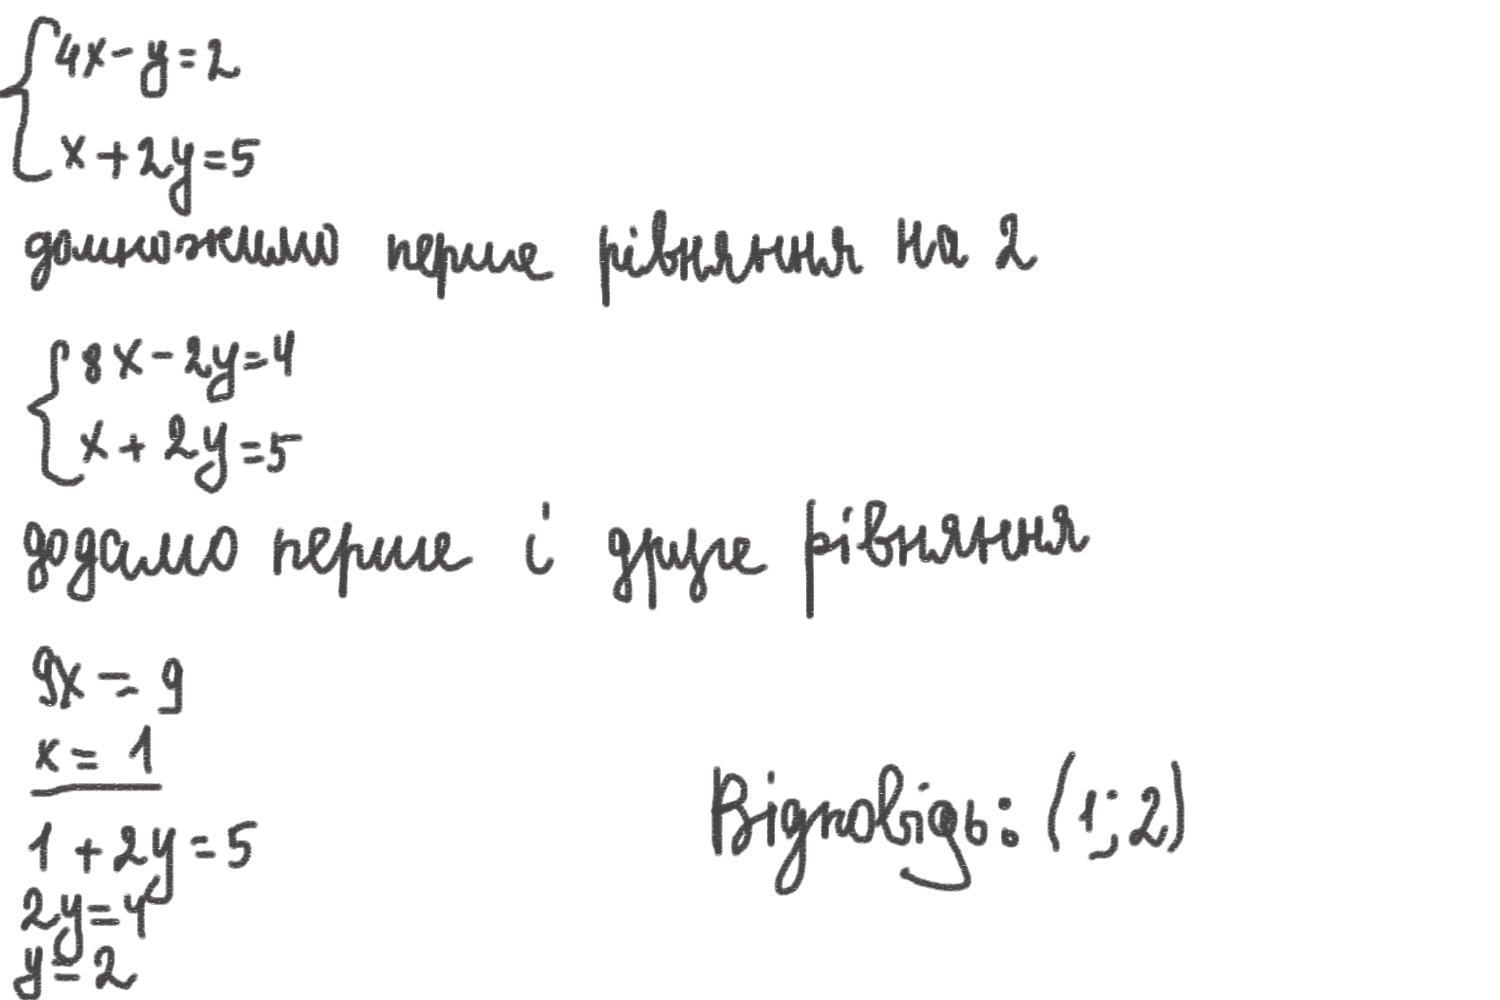 4x - y = 2
x + 2y = 5
домножимо перше рівняння на 2
8x - 2y = 4
x + 2y = 5
додамо перше і друге рівняння
9x = 9
x = 1
1 + 2y = 5
2y = 4
y = 2
Відповідь: (1; 2)